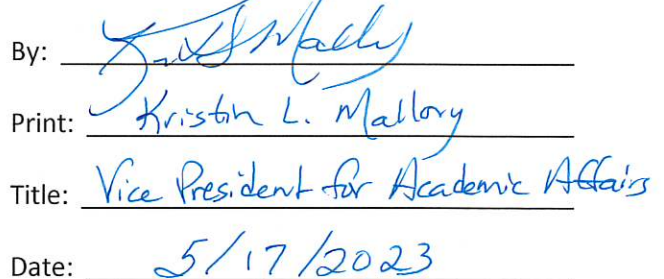 By:
Print: Kristin L. Mallory
Title: Vice President for Academic Affairs
Date: 5/17/2023